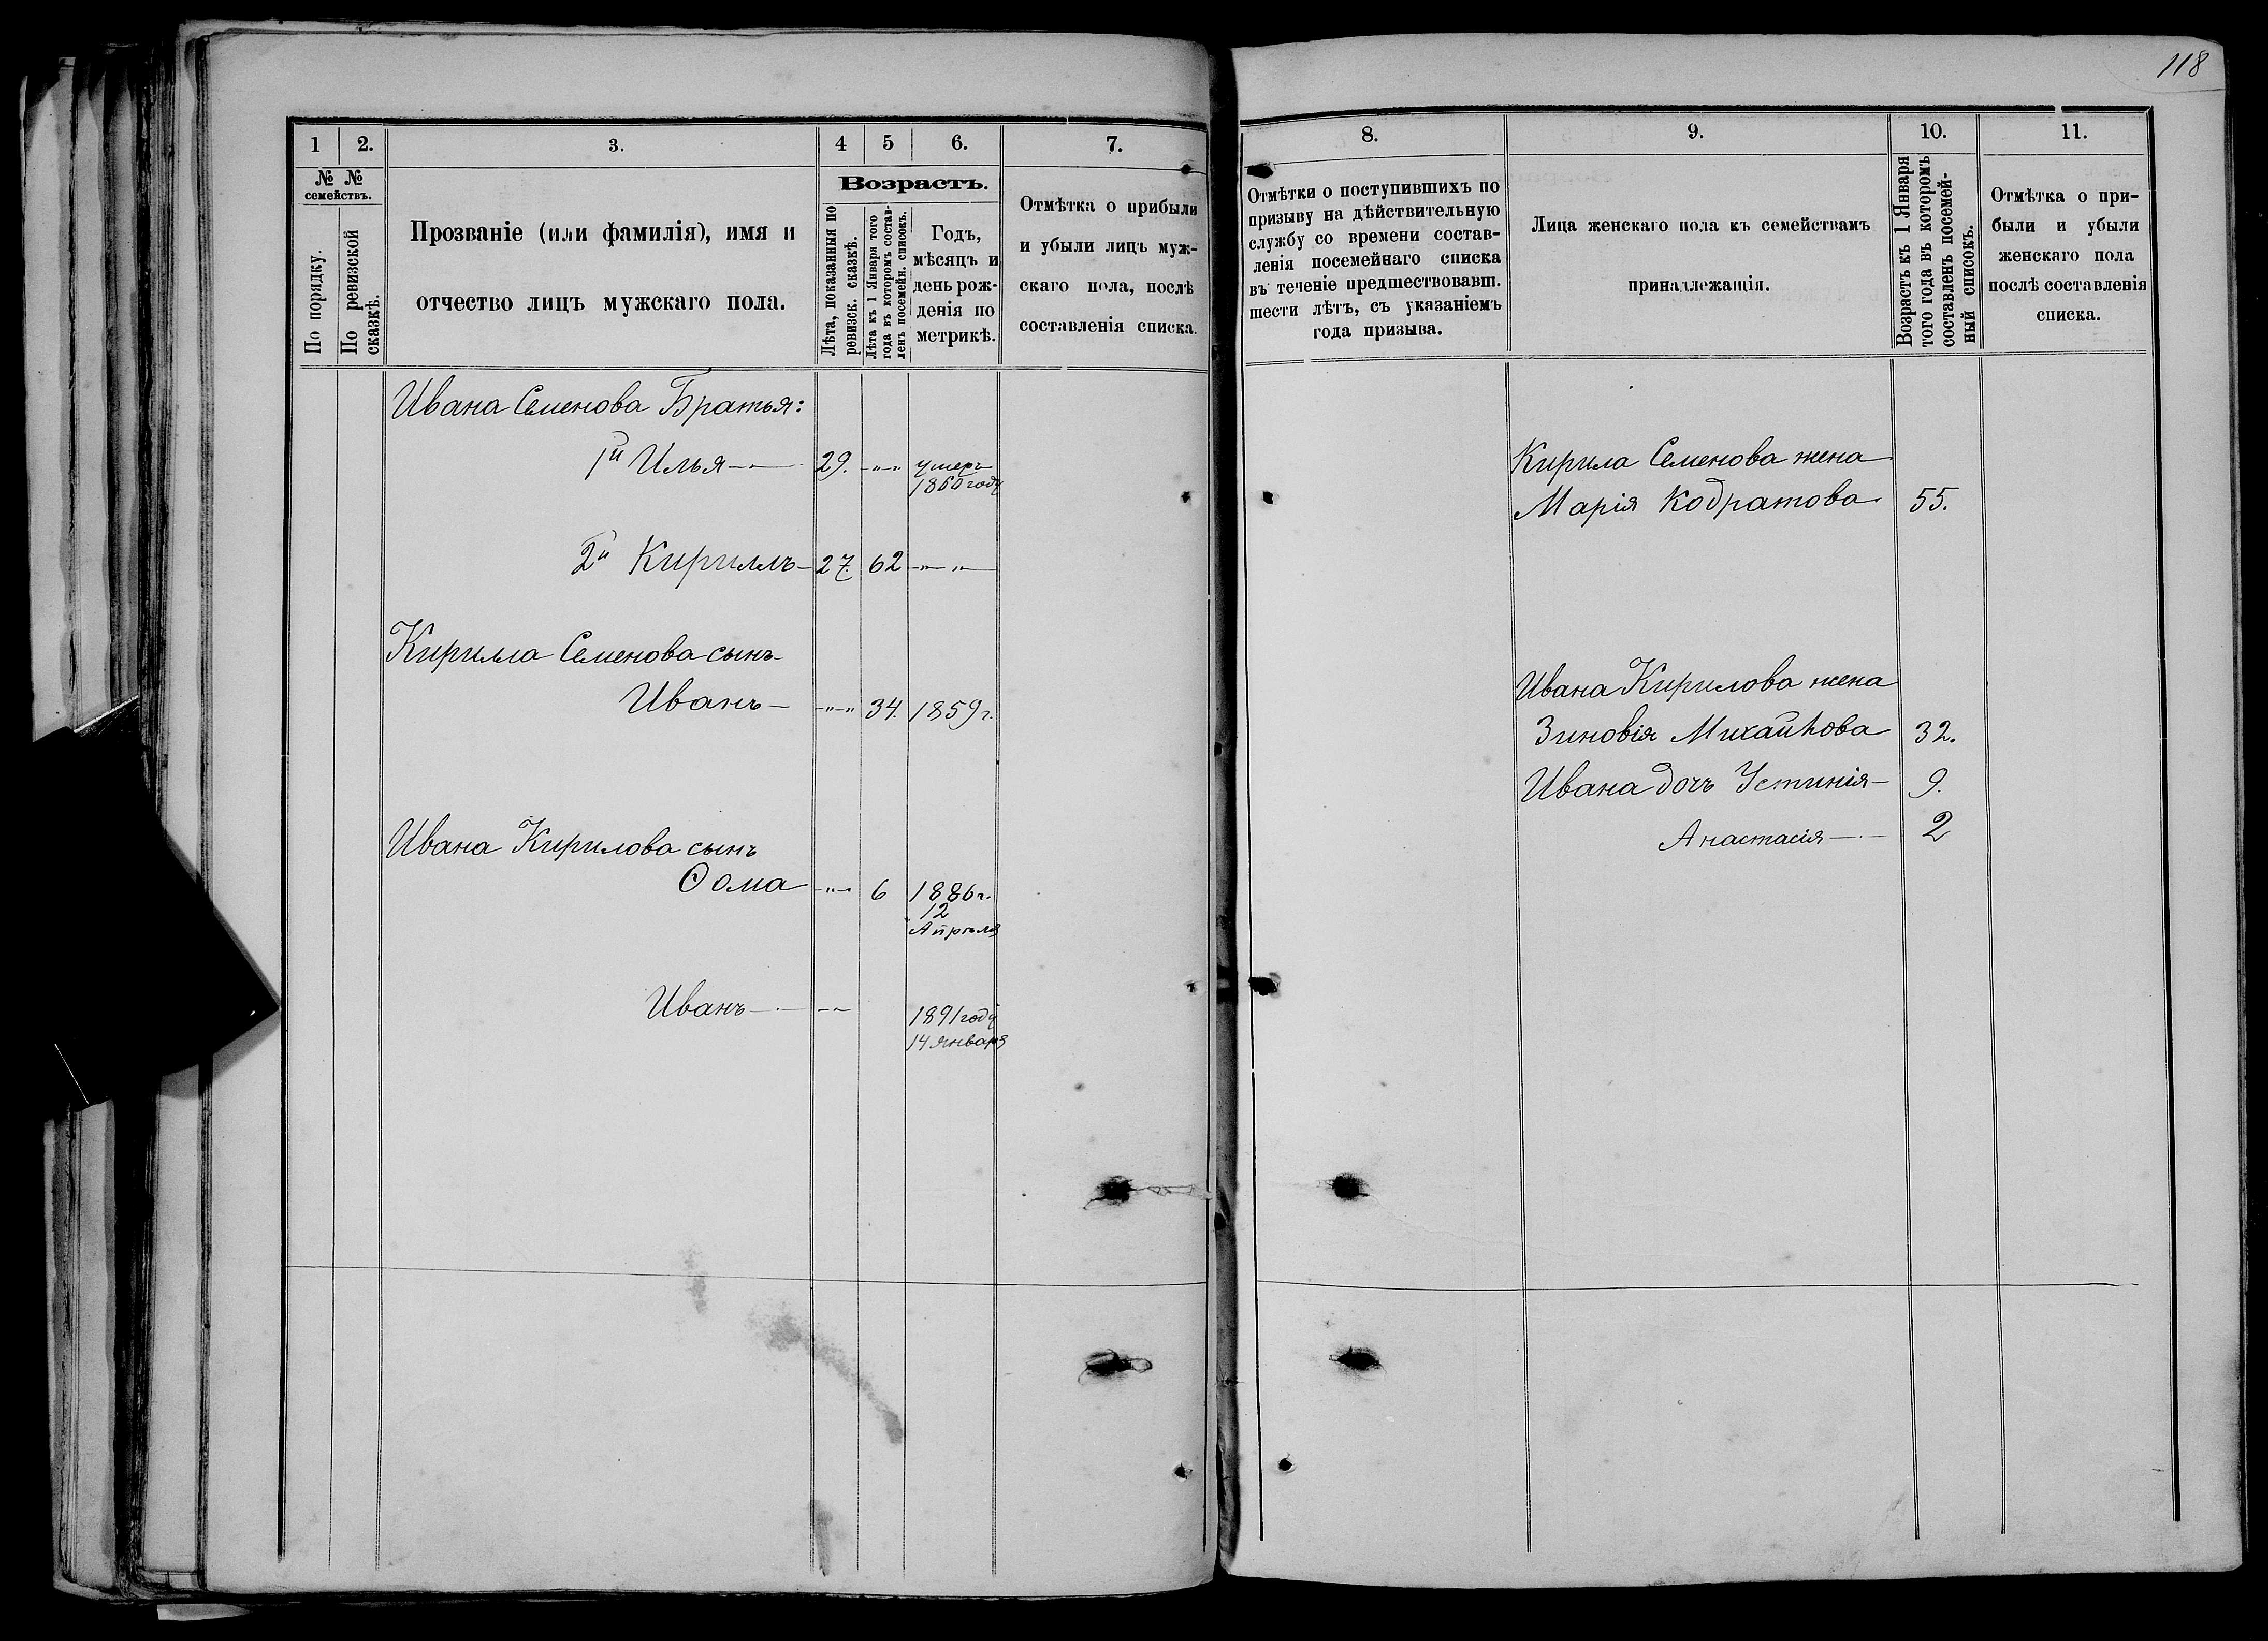 118
1 2. 3. 4 5 6. 7.
№ № семействъ.
По порядку.
По ревизской сказкѣ.
Прозваніе (или фамилія), имя и
отчество лицъ мужскаго пола.
Возрастъ.
Лѣта, показанныя по ревизск. сказкѣ.
Лѣта къ 1 Января того года въ которомъ составленъ посемейн. списокъ.
Годъ,
мѣсяцъ и
день рож-
денія по
метрикѣ.
Отмѣтка о прибыли
и убыли лицъ муж-
скаго пола, послѣ
составленія списка.
Ивана Семенова Братья:
1й Илья 29. умеръ
1860 году
2й Кириллъ 27. 62
Кирилла Семенова сынъ
Иванъ 34. 1859 г.
Ивана Кирилова сынъ
Ѳома 6 1886 г.
12
Апрѣля
Иванъ 1891 году
14 Января
8. 9. 10. 11.
Отмѣтки о поступившихъ по
призыву на дѣйствительную
службу со времени состав-
ленія посемейнаго списка
въ теченіе предшествовавш.
шести лѣтъ, съ указаніемъ
года призыва.
Лица женскаго пола къ семействамъ
принадлежащія.
Возрастъ къ 1 Января
того года въ которомъ
составленъ посемей-
ный списокъ.
Отмѣтка о при-
были и убыли
женскаго пола
послѣ составленія
списка.
Кирила Семенова жена
Марія Кодратова 55.
Ивана Кирилова жена
Зиновія Михайлова 32.
Ивана дочь Устинія 9.
Анастасія 2